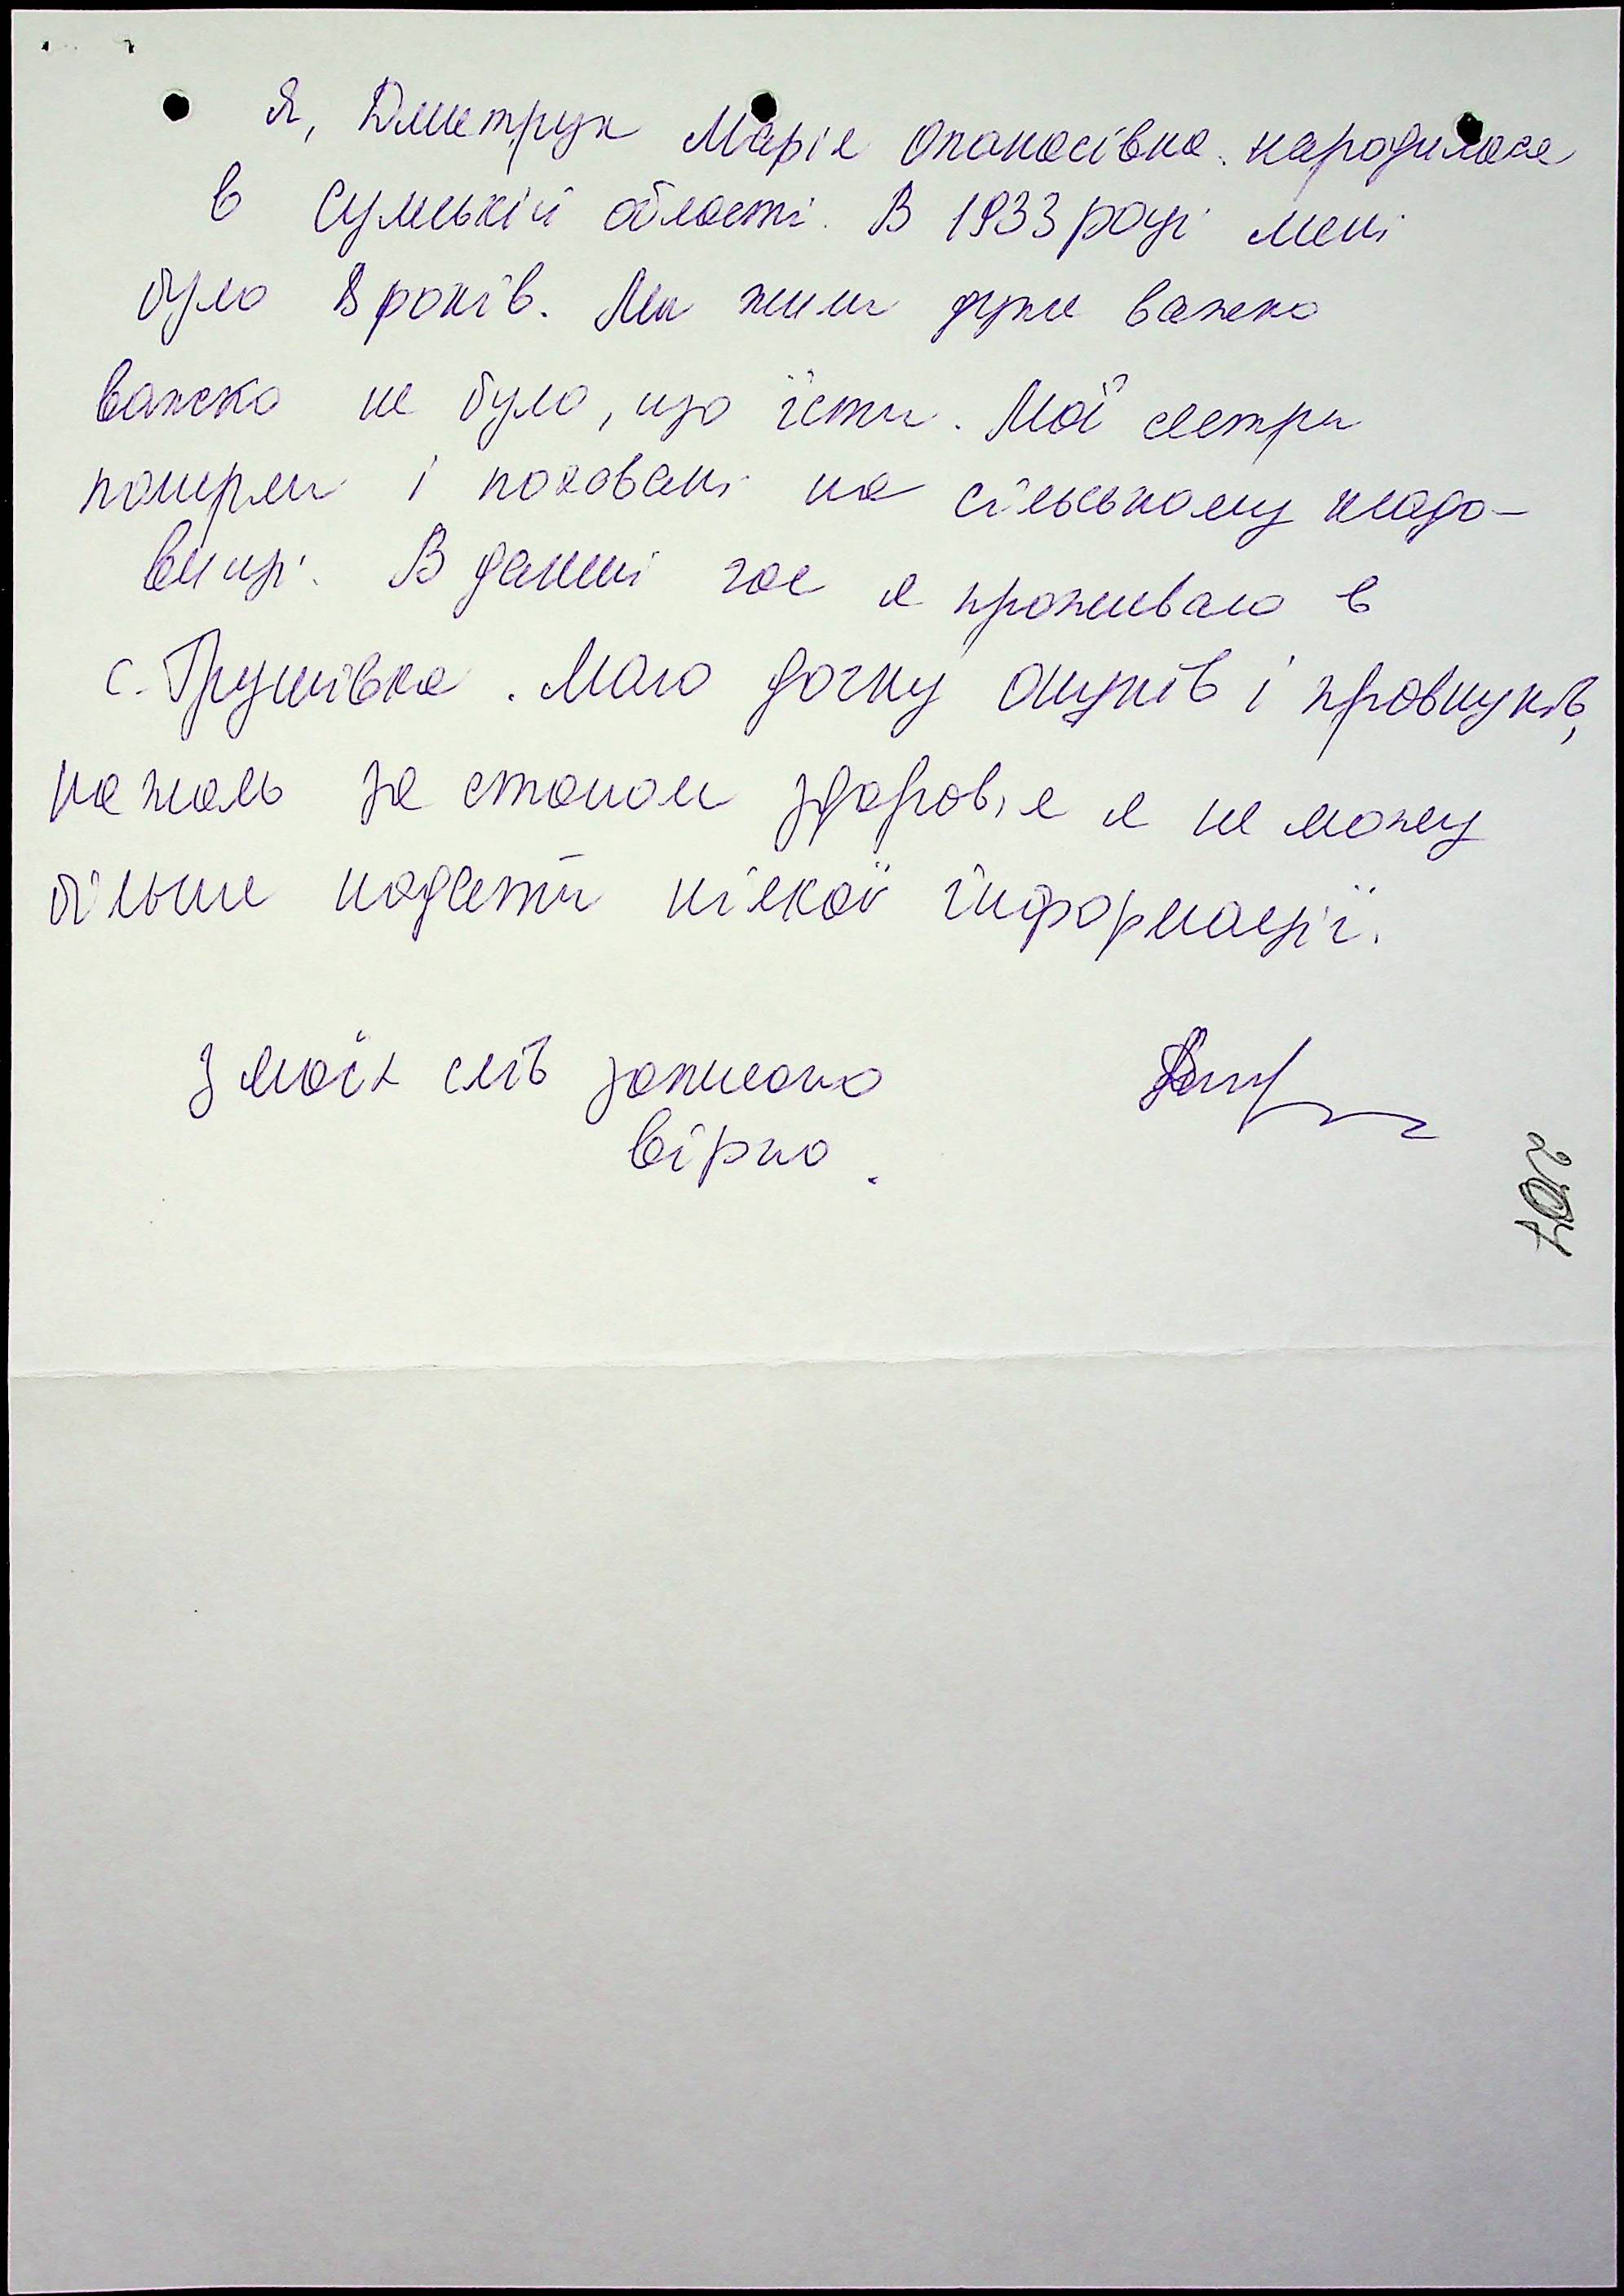 Я, Дмитрук Марія Опанасівна. народилася
в Сумській області. В 1933 році мені
було 8 років. Ми жили дуже важко
важко не було, що їсти. Мої сестри
померли і поховані на сільському кладо-
вищі. В данні час я проживаю в
с. Грушівка. Маю дочку онуків і правнуків,
на жаль за станом здоров'я я не можу
більше надати ніякої інформації.
З моїх слів записано
вірно.